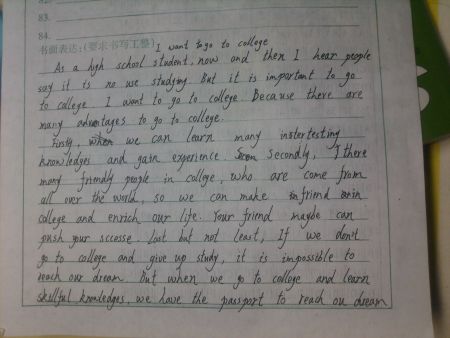 83.
84.
书面表达:(要求书写工整) I want to go to college
As a high school student, now and then I hear people
say it is no use studying. But it is important to go
to college. I want to go to college. Because there are
many advantages to go to college.
Firstly, when we can learn many intertesting
knowledges and gain experience. Secondly, there
many friendly people in college, who are come from
all over the world, so we can make friend in
college and enrich our life. Your friend maybe can
push your sccesse. Last but not least, If we don't
go to college and give up study, it is impossible to
reach our dream. But when we go to college and learn
skillful knowledges, we have the passport to reach ou dream